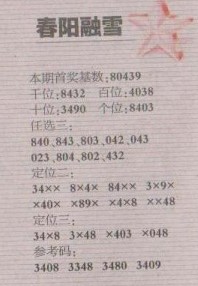 春阳融雪
本期首奖基数:80439
千位:8432 百位:4038
十位:3490 个位:8403
任选三:
840、843、803、042、043
023、804、802、432
定位二:
34×× 8×4× 84×× 3×9×
×40× ×89× ×4×8 ××48
定位三:
34×8 3×48 ×403 ×048
参考码:
3408 3348 3480 3409